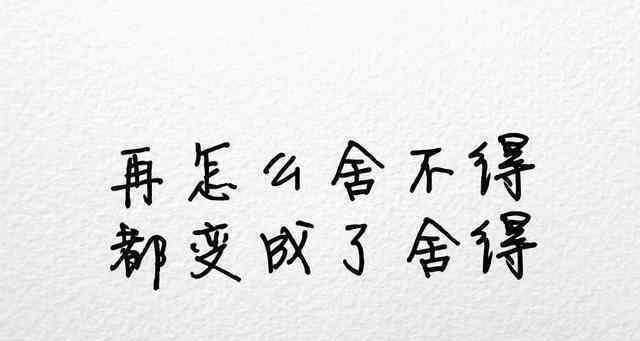 再怎么舍不得
都变成了舍得